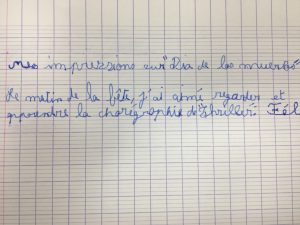 mes impressions sur "Dia de los muertos
Le matin de la fête, j'ai aimé regarder et
apprendre la chorégraphie de "thriller". Fél